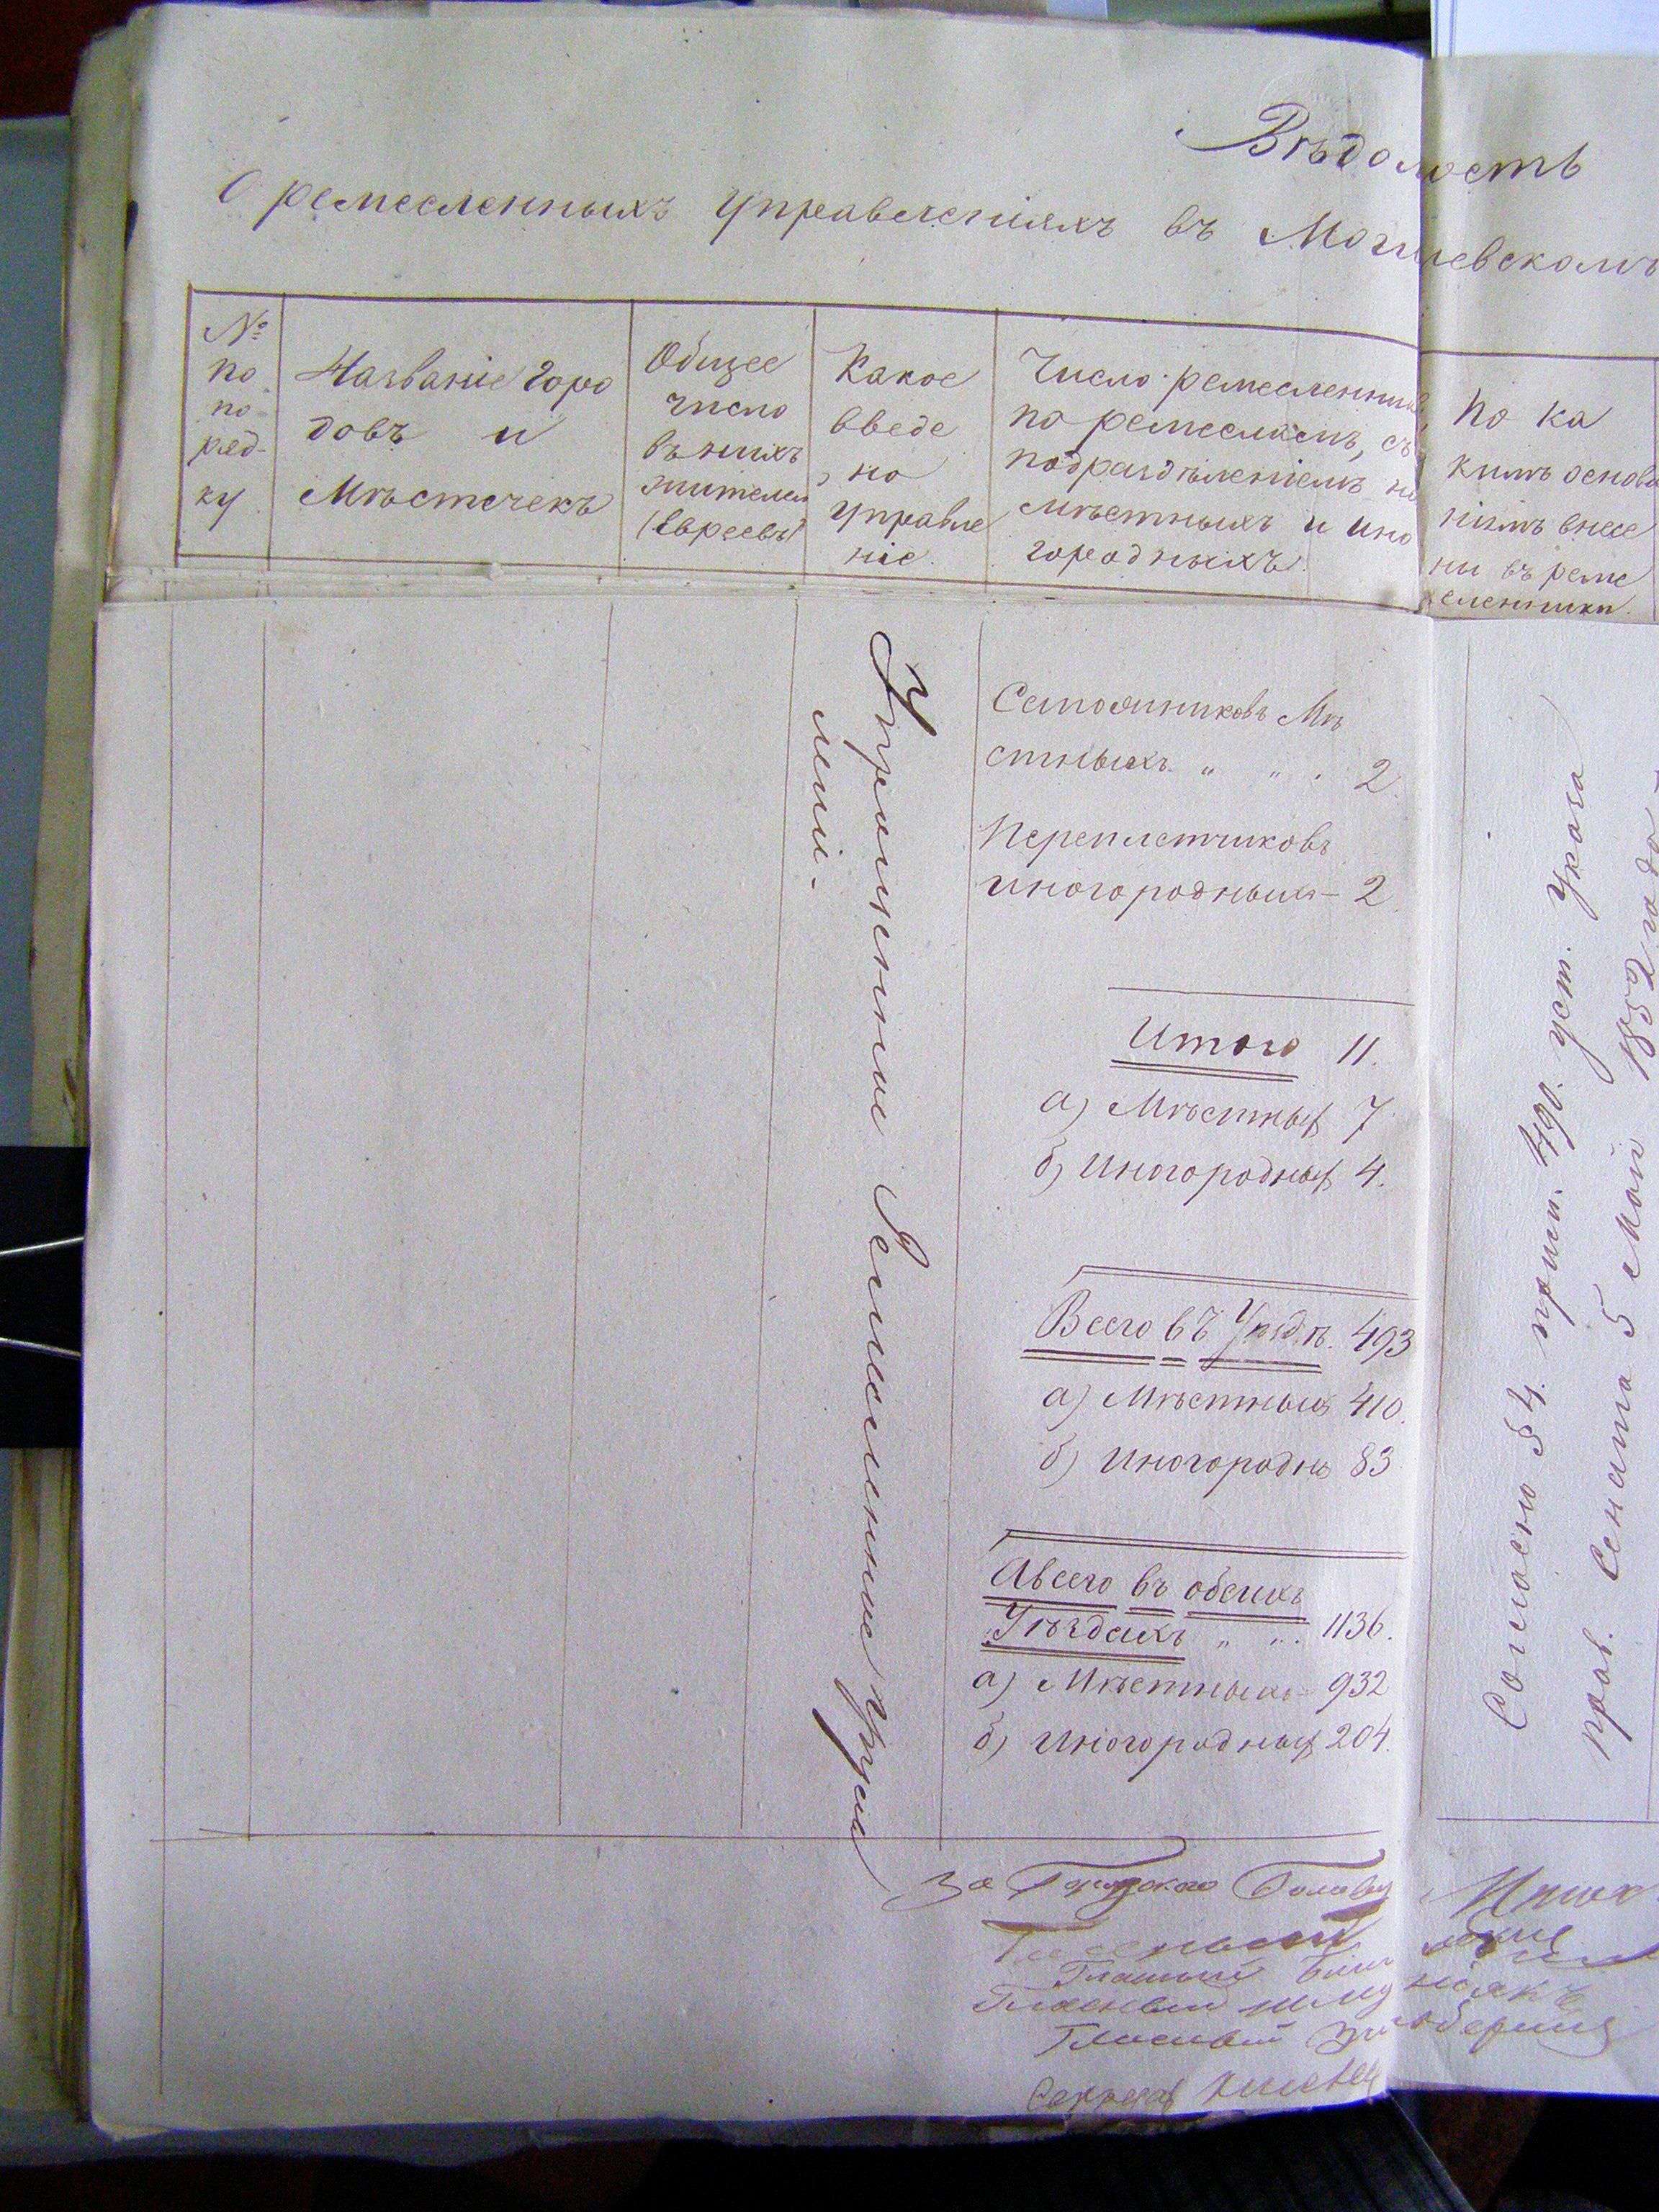 Вѣдомость
О ремесленныхъ управленіяхъ въ Могилевскомъ
№
по
по-
ряд-
ку
Названіе горо
довъ и
Мѣстечекъ
Общее
число
въ нихъ
жителей
(Евреевъ)
Какое
введе
но
управле
ніе.
Число ремесленник
по ремесламъ, съ
подраздѣленіемъ на
мѣстныхъ и ино
городныхъ.
По ка
кимъ основа
ніямъ внесе
ны въ реме
сленники.
Упрощенные Ремесленные Управ
леніи.
Сапожниковъ Мѣ
стныхъ " " . 2
Переплетчиковъ
иногородныхъ - 2
Итого 11.
а) Мѣстныхъ 7
б) Иногородныхъ 4.
Всего въ Уѣздѣ. 493
а) Мѣстныхъ 410.
б) Иногородны 83
А всего въ обеихъ
Уѣздахъ " " . 1136.
а) Мѣстныхъ - 932
б) Иногородныхъ 204.
Согласно § 4. прим. 490. уст. Указа
прав. Сената 5 Мая 1852 года
За Городского Голову
Гласный
Гласный
Гласный
Гласный
Секретарь